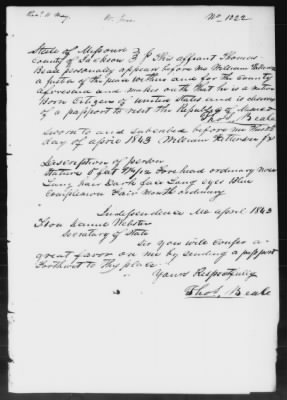 No 1222
State of Missouri
County of Jackson } This affiant Thomas
Beale personally appear before me William Patterson
a justice of the peace within and for the county
aforesaid and makes oath that he is a native
Born Citizen of united States and is desirous
of a pasport to visit the Republic of Mexico
Thos. Beale
Sworn to and subscribed before me this
day of aprile 1843 William Patterson jp
Discription of person
Stature 6 fet Forehead ordinary nose
Long hair Dark face Long eyes Blue
Complexion Fair mouth ordinary
Independence Mo april 1843
Hon Daniel Webster
Secretary of State
Sir you will confer a
great favor on me by sending a pasport
Forthwith to this place
Yours Respectfully
Thos. Beale